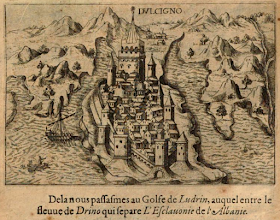 DVLCIGNO
De là nous passasmes au Golfe de Ludrin, auquel entre le
fleuue de Drino qui separe L'Esclauonie de l'Albanie.